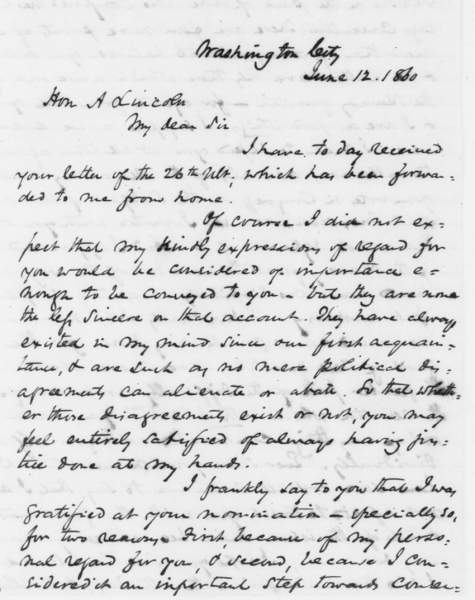 Washington City
June 12. 1860
Hon A Lincoln
My dear Sir
I have to day received
your letter of the 26th Ult, which has been forwa-
ded to me from home.
Of course I did not ex-
pect that my kindly expressions of regard for
you would be considered of importance e-
nough to be conveyed to you - but they are none
the less sincere on that account. They have always
existed in my mind since our first acquain-
tance, & are such as no mere political dis-
agreements can alienate or abate. So that wheth-
er those disagreements exist or not, you may
feel entirely satisfied of always having jus-
tice done at my hands.
I frankly say to you that I was
gratified at your nomination - specially so,
for two reasons first, because of my perso-
nal regard for you, & second, because I con-
sidered it an important step towards conser-